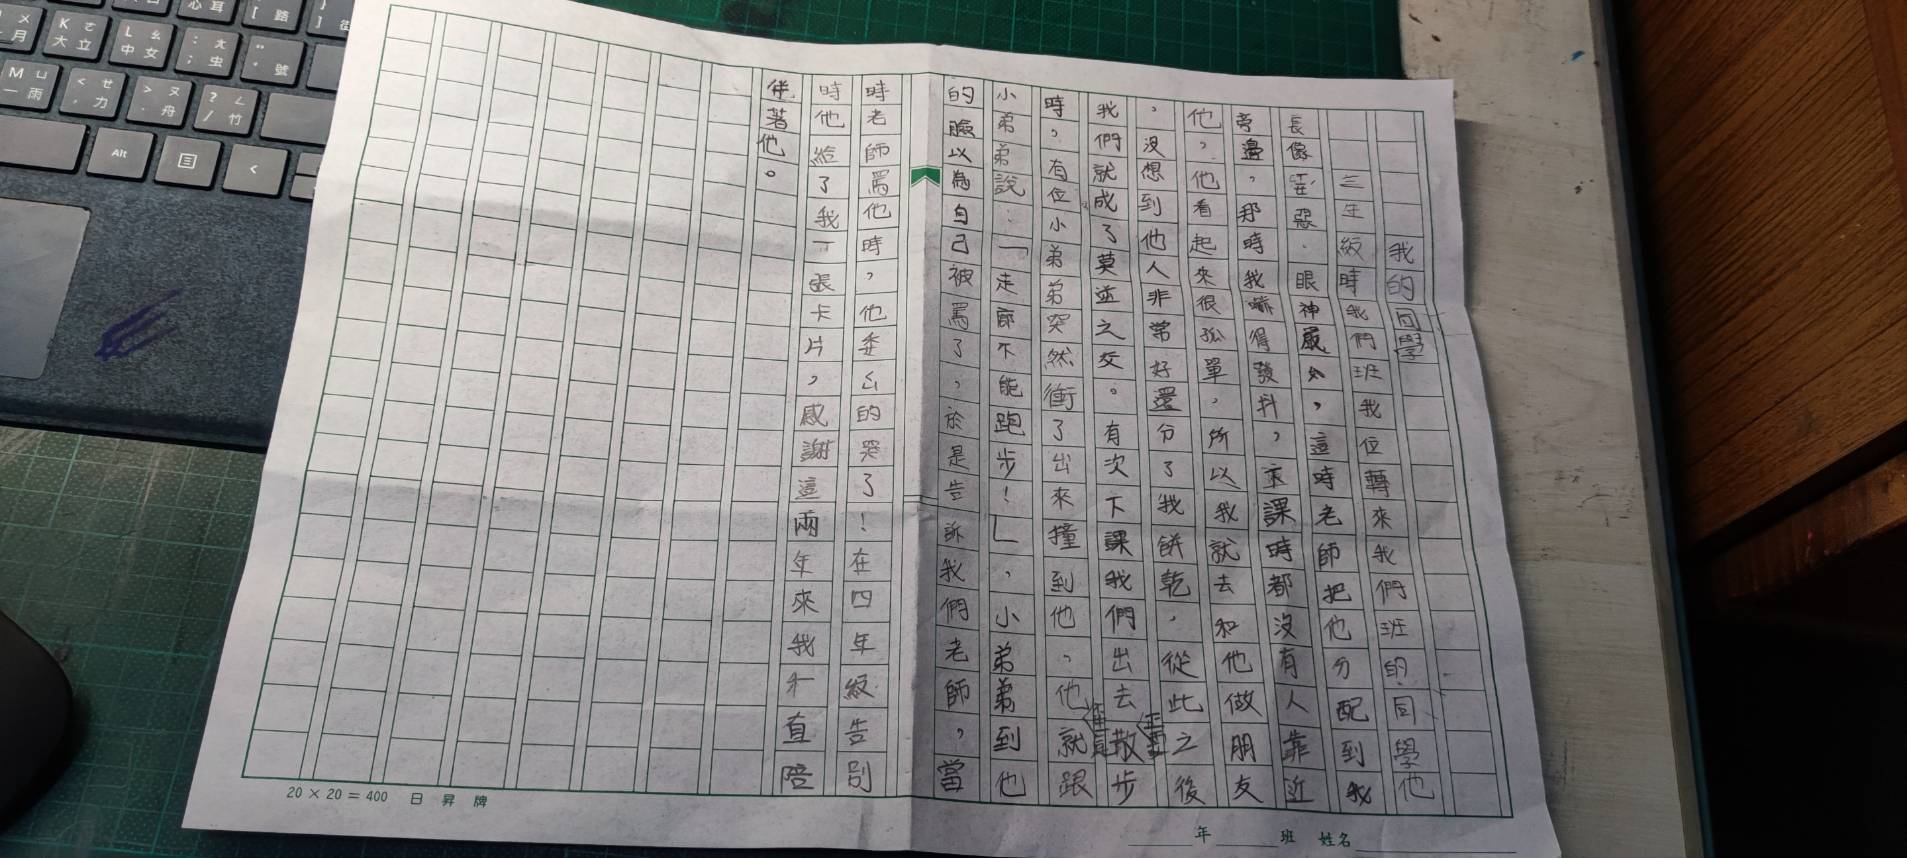 我的同學
三年級時我們班我位轉來我們班的同學他
長像兇惡,眼神嚴肅,這時老師把他分配到我
旁邊,那時我嚇得發抖,下課時都沒有人靠近
他,他看起來很孤單,所以我就去和他做朋友
,沒想到他人非常好還分了我餅乾,從此之後
我們就成了莫逆之交。有次下課我們出去散步
時,有位小弟弟突然衝了出來撞到他,他就跟
小弟弟說:「走廊不能跑步!」,小弟弟到他
的臉以為自己被罵了,於是告訴我們老師,當
時老師罵他時,他委屈的哭了!在四年級告別
時他給了我一張卡片,感謝這兩年來我一直陪
伴著他。
20 × 20 = 400 日昇牌
年 班 姓名
K ㄜ 大 立
L ㄠ 中 女
; ㄤ 虫
號
M ㄩ 一 雨
< ㄝ , 力
> ㄡ . 舟
? ㄥ / 竹
Alt
<